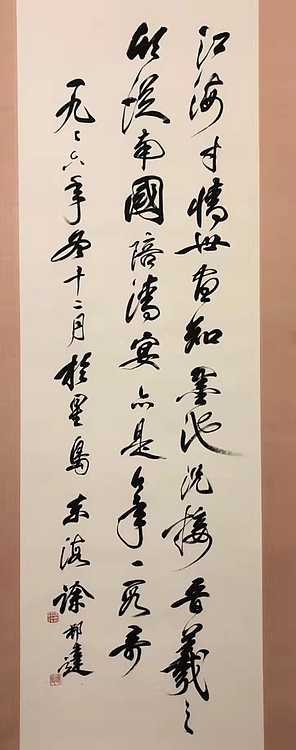 江海才情世盡知墨池況接晉羲之
欣從南國陪清宴亦是今年一段奇
一九八六年冬十二月於星島東海徐邦達